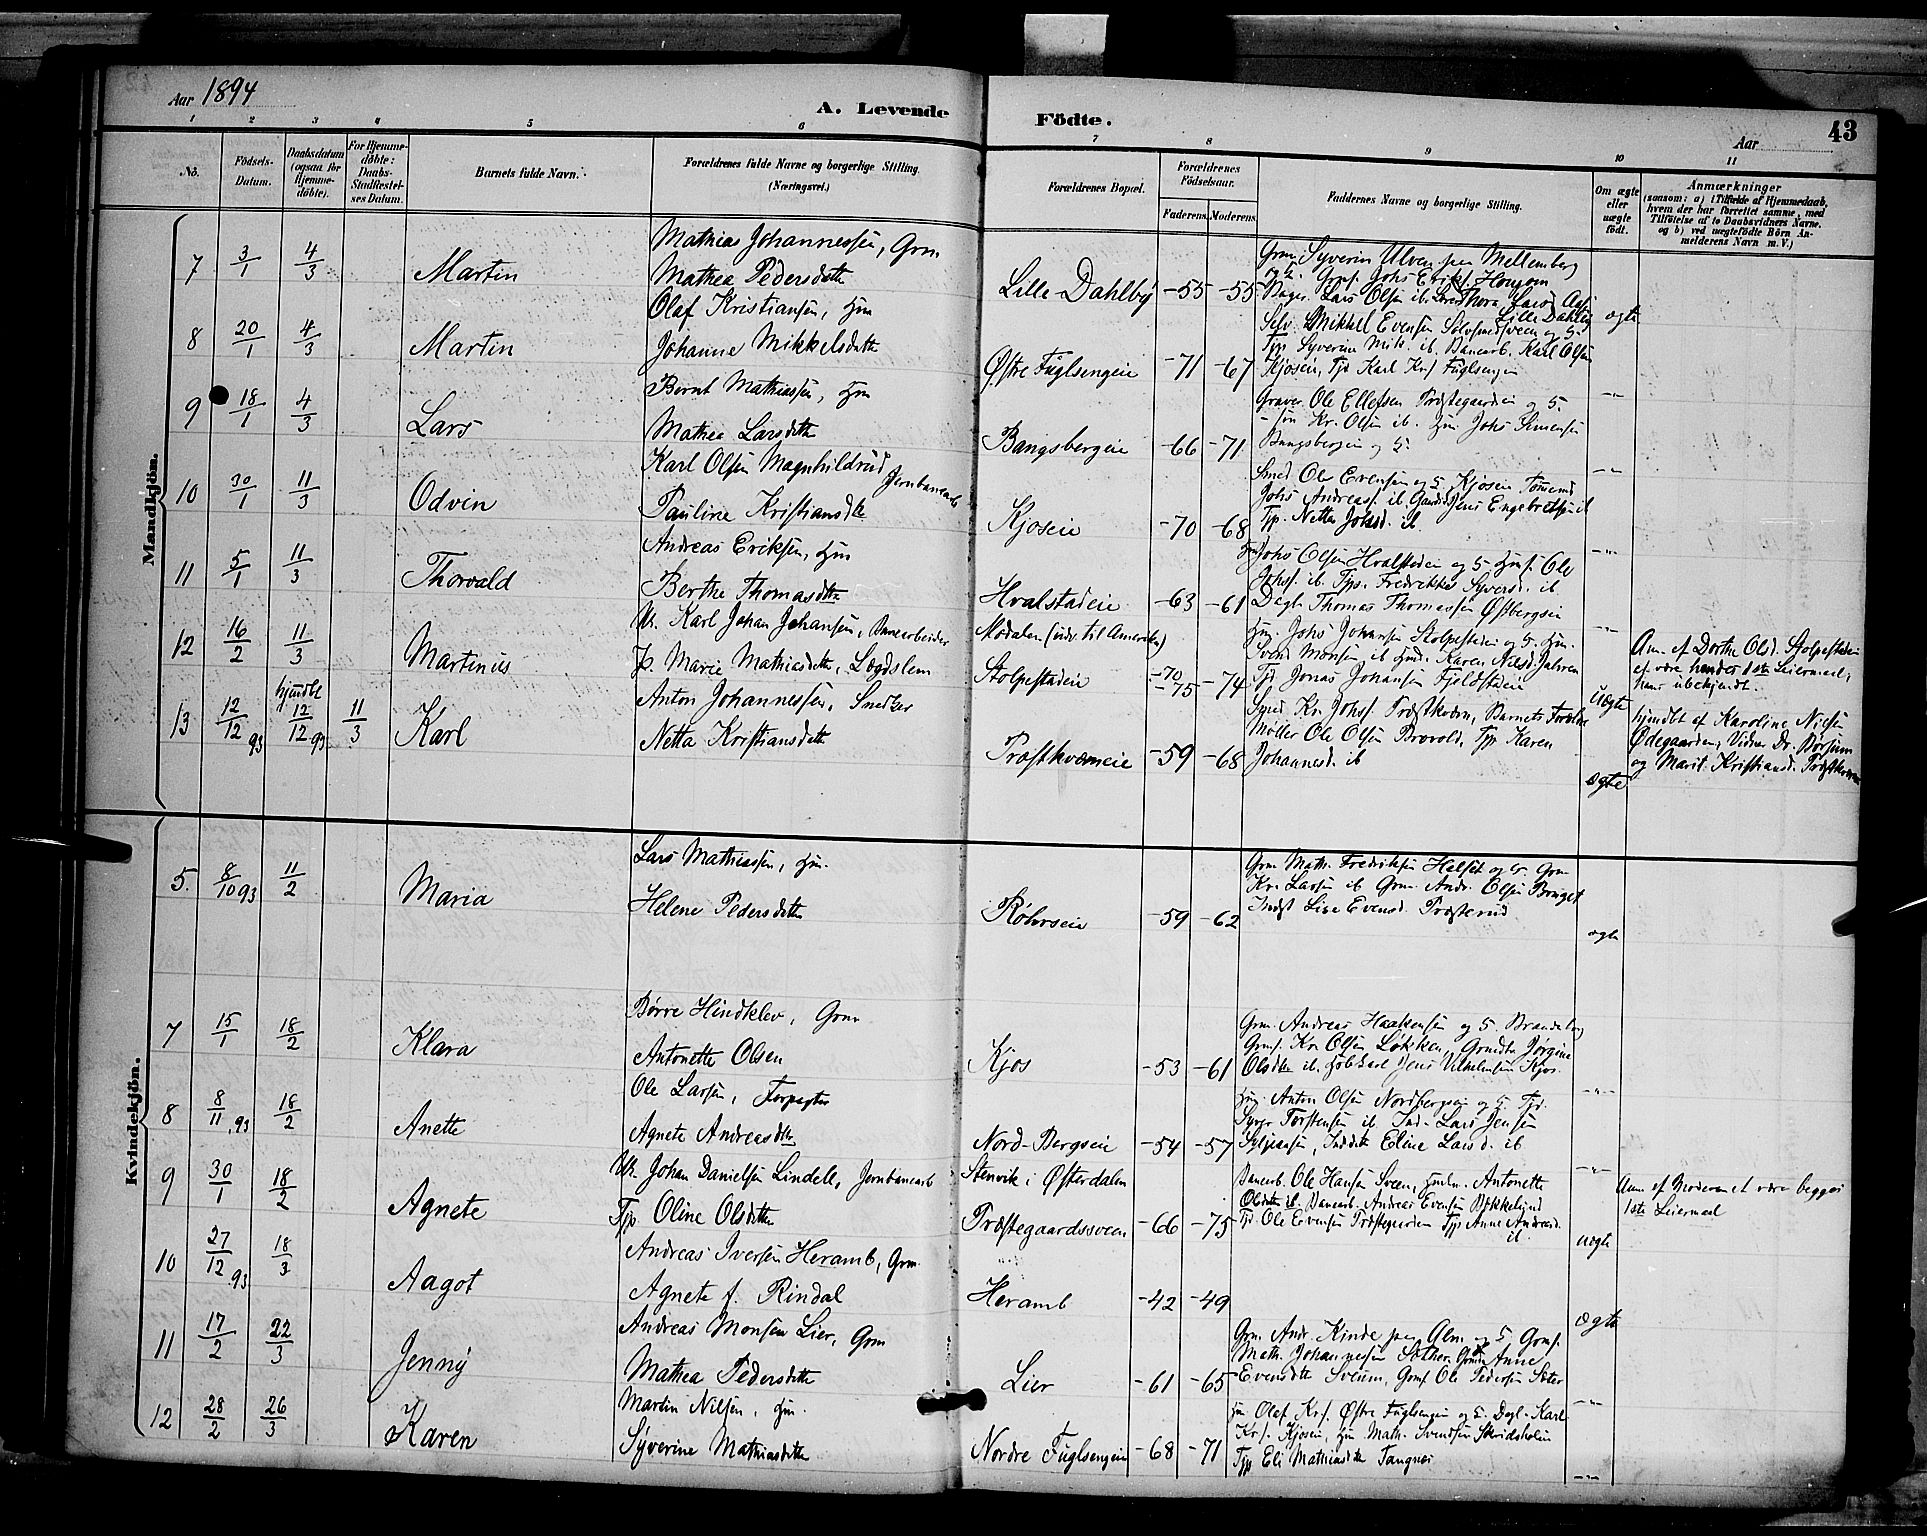 Aar 1894
A. Levende Födte.
Aar
43
1 2 3 4 5 6 7 8 9 10 11
No.
Födsels-Datum.
Daabsdatum (ogsaa for Hjemmedøbte).
For Hjemmedøbte: Daabs-Stadfestelses Datum.
Barnets fulde Navn.
Forældrenes fulde Navne og borgerlige Stilling. (Næringsvei.)
Forældrenes Bopæl.
Forældrenes Födselsaar.
Faderens. Moderens.
Faddernes Navne og borgerlige Stilling.
Om ægte eller uægte født.
Anmærkninger
(saasom: a) i Tilfælde af Hjemmedaab, hvem der har forrettet samme, med Tilföielse af to Daabsvidners Navne, og b) ved uægtefödte Börn Anmelderens Navn m.V.)
Mandkjön.
7 3/1 4/3 Martin
Mathias Johannessen, Grm
Mathea Pedersdatter
Lille Dahlby -55 -55
Grm. Syverin Ulven paa Mellemberg
ægte
8 20/1 4/3 Martin
Olaf Kristiansen, Hm
Johanne Mikkelsdatter
Østre Fuglsengeie -71 -67
Selv. Mikkel Evensen
Banearb. Karl Olsen
Kjoseie, Tj Karl Krs Fuglsengen
-"-
9 18/1 4/3 Lars
Bernt Mathiassen, Hm
Mathea Larsdatter
Bangsbergeie -66 -71
Graver Ole Ellefsen Præstegaarden og 5.
Kr. Olsen ib. Hm Johs Simensen
Bangsbergeie og 5.
-"-
10 30/1 11/3 Odvin
Karl Olsen Magnhildrud Jernbanearb
Pauline Kristiansdtr
Kjoseie -70 -68
Smed Ole Evensen og 5 Kjoseie
Johs Andreass. ib. Jens Engebretsen ib
Tjp. Netta Johsd. ib
-"-
11 5/1 11/3 Thorvald
Andreas Eriksen, Hm
Berthe Thomasdtr
Hvalstadeie -63 -61
Johs Olsen Hvalstadeie og 5 Hms. Ole
Johss. ib. Tjp. Fredrikke Syversd. ib
Dagl. Thomas Thomassen Østbergeie
-"-
12 16/2 11/3 Martinus
Uk. Karl Johan Johansen, Banearbeider
Tp. Marie Mathiasdatter, Lægdslem
Modalen (indr. til Amerika)
Stolpestadeie -70 -75 -74
Hm. Johs Johansen Stolpestadeie og 5. Hm.
Svend Monsen ib Hmd. Karen Nilsd. Jahren
Tj Jonas Johansen Fjeldstadeie
Uægte
Anm. af Dorthe Olsd. Stolpestadeie
at være hendes 1ste Leiermaal,
hans ubekjendt.
13 12/12 93 hjmdbt 12/12 93 11/3 Karl
Anton Johannessen, Snedker
Netta Kristiansdatter
Præstkværneie -59 -68
Smed Kr. Johss. Præstkværn, Barnets Forældre
Møller Ole Olsen Brovold, Tjp Karen
Johannesd. ib
ægte
hjmdbt af Karoline Nielsen
Ødegaarden, Vidner Dr. Borsium
og Marit Kristiansd. Præstkværn
Kvindekjön.
5. 8/10 93 11/2 Maria
Lars Mathiassen, Hm.
Helene Pedersdatter
Röhrseie -59 -62
Grm. Math. Fredriksen Halset og 5 Grm
Kr. Larsen ib Grm. Andr. Olsen Bruget
Indst Lise Evensd. Præsterud
ægte
7 15/1 18/2 Klara
Börre Hindklev, Grm
Antonette Olsen
Kjos -53 -61
Grm. Andreas Haakensen og 5. Brandeby
Grms. Kr. Olsen Løkken, Grmdtr Jørgine
Olsdtr ib. Jens Vilhelmsen Kjos.
-"-
8 8/11 93 18/2 Anette
Ole Larsen, Forpagter
Agnete Andreasdtr
Nord-Bergseie -54 -57
Hm. Anton Olsen Nordbergseie og 5. Tjd.
Syver Torstensen ib. Ind. Lars Jensen
Inddtr Eline Larsd. ib
-"-
9 30/1 18/2 Agnete
Uk. Johan Danielsen Lindell, Jernbanearb
Tjp Oline Olsdatter
Stenvik i Østerdalen
Præstegaardssveen -66 -75
Banearb. Ole Hansen Sveen, Hmdtr. Antonette
Olsdtr ib. Banearb. Andreas Evensen Bækkelund
Tj. Ole Evensen Præstegaarden Tjp Anne Andreasd. ib
uægte
Anm. af Moderen at være begges
1ste Leiermaal
10 27/12 93 18/3 Aagot
Andreas Iversen Heramb, Grm.
Agnete f. Rindal
Heramb -42 -49
ægte
11 17/2 22/3 Jenny
Andreas Monsen Lier, Grm
Mathea Pedersdatter
Lier -61 -65
Grm. Andr. Kinde paa Alm. og 5 Grms.
Math. Johannessen Sæther Grmdtr Anne
Evensdtr Sveum, Grms Ole Pedersen Sæter
-"-
12 28/2 26/3 Karen
Martin Nilsen, Hm.
Syverine Mathiasdatter
Nordre Fuglsengeie -68 -71
Hm Olaf Krs. Østre Fuglsengeie og 5. Dagl. Karl
Krs. Kjoseie, Hm Math. Svendsen Skridsholen
Tjp Eli Mathiasdtr Tangnæs
-"-